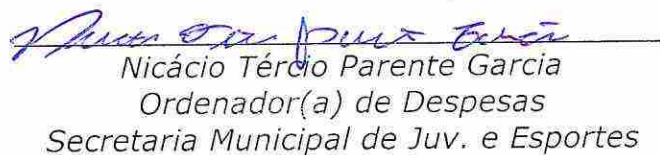 Nicácio Tércio Parente Garcia
Ordenador(a) de Despesas
Secretaria Municipal de Juv. e Esportes